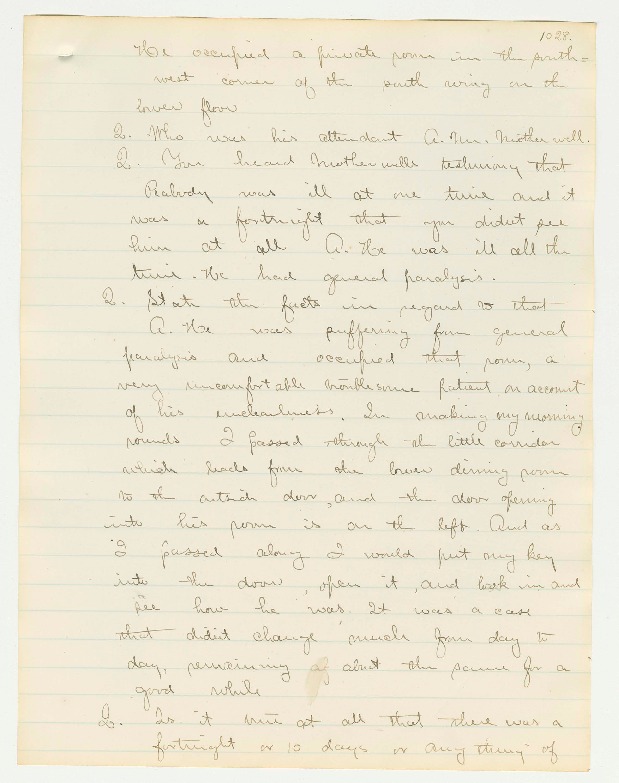 1028.
He occupied a private room in the south=
west corner of the south wing on the
lower floor
Q. Who was his attendant A. Mr. Motherwell.
Q. You heard Motherwells testimony that
Peabody was ill at one time and it
was a fortnight that you didnt see
him at all A. He was ill all the
time. He had general paralysis.
Q. State the facts in regard to that
A. He was suffering from general
paralysis and occupied that room, a
very uncomfortable troublesome patient on account
of his uncleanliness. In making my morning
rounds I passed through the little corridor
which leads from the lower dining room
to the outside door, and the door opening
into his room is on the left. And as
I passed along I would put my key
into the door, open it, and look in and
see how he was. It was a case
that didnt change much from day to
day, remaining about the same for a
good while
Q. Is it true at all that there was a
fortnight or 10 days or any thing of